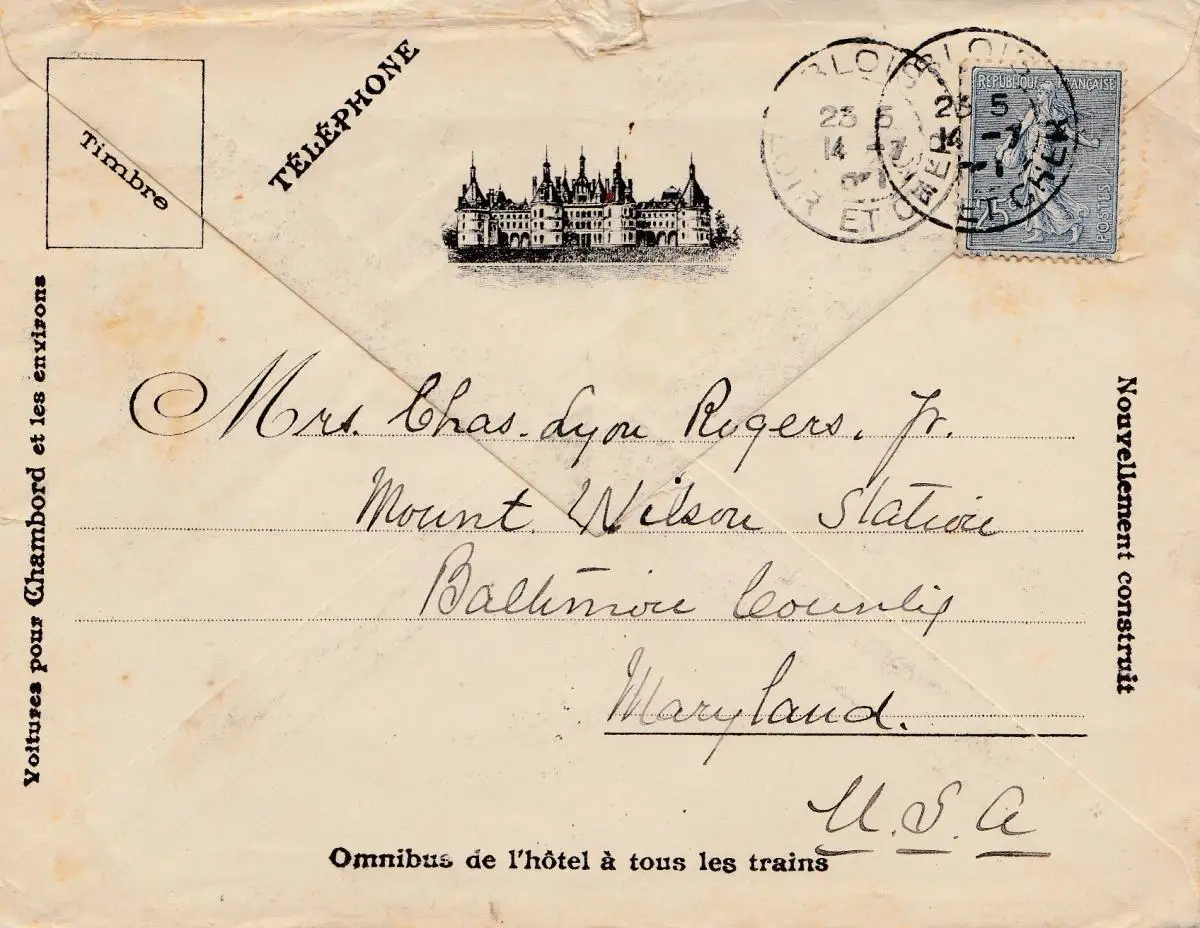 Timbre
TÉLÉPHONE
BLOIS
23 5
14 -7
LOIR ET CHER
BLOIS
23 5
14 -7
ET CHER
RÉPUBLIQUE FRANÇAISE
25c
POSTES
Voitures pour Chambord et les environs
Nouvellement construit
Mrs. Chas. Lyon Rogers, Jr.
Mount Wilson Station
Baltimore County
Maryland.
U.S.A
Omnibus de l'hôtel à tous les trains